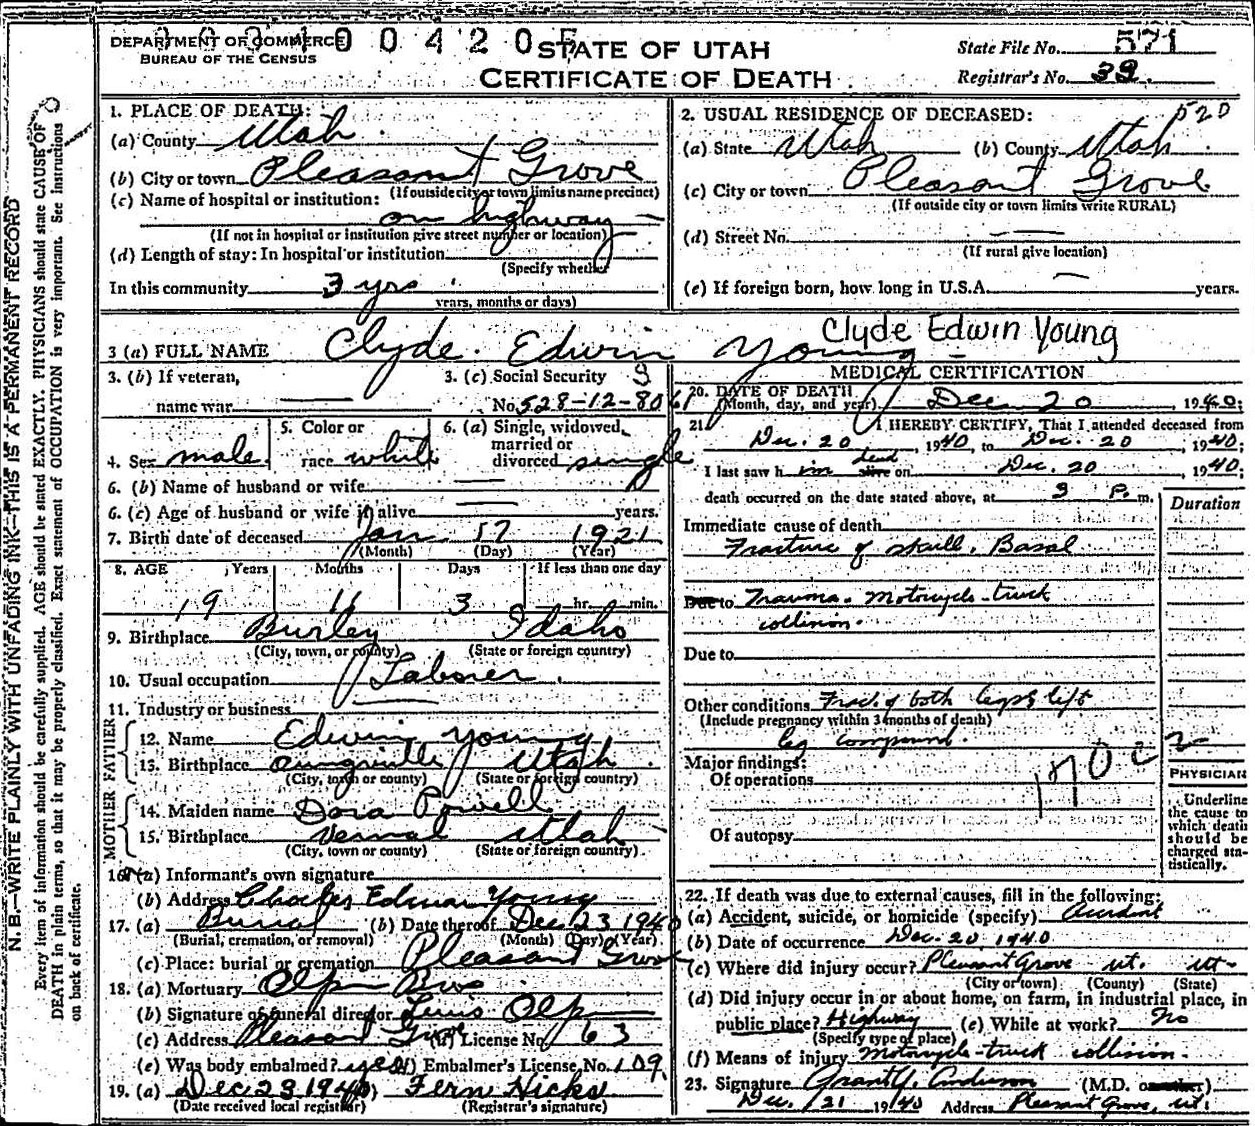 DEPARTMENT OF COMMERCE
BUREAU OF THE CENSUS
STATE OF UTAH
CERTIFICATE OF DEATH
State File No. 571
Registrar's No. 39.
1. PLACE OF DEATH:
(a) County Utah
(b) City or town Pleasant Grove
(If outside city or town limits name precinct)
(c) Name of hospital or institution:
on highway
(If not in hospital or institution give street number or location)
(d) Length of stay: In hospital or institution
(Specify whether
In this community 3 yrs.
years, months or days)
2. USUAL RESIDENCE OF DECEASED: 520
(a) State Utah (b) County Utah
(c) City or town Pleasant Grove
(If outside city or town limits write RURAL)
(d) Street No. —
(If rural give location)
(e) If foreign born, how long in U.S.A. — years.
3 (a) FULL NAME Clyde Edwin Young
Clyde Edwin Young
3. (b) If veteran,
name war —
3. (c) Social Security
No. 528-12-8061
4. Sex male
5. Color or
race white
6. (a) Single, widowed,
married or
divorced single
6. (b) Name of husband or wife —
6. (c) Age of husband or wife if alive — years.
7. Birth date of deceased Jan 17 1921
(Month) (Day) (Year)
8. AGE Years Months Days If less than one day
19 11 3 hr. min.
9. Birthplace Burley Idaho
(City, town, or county) (State or foreign country)
10. Usual occupation Laborer.
11. Industry or business —
FATHER
12. Name Edwin Young
13. Birthplace Utah
(City, town or county) (State or foreign country)
MOTHER
14. Maiden name Dora Powell
15. Birthplace Vernal Utah
(City, town or county) (State or foreign country)
16. (a) Informant's own signature
(b) Address Charles Edwin Young
17. (a) Burial (b) Date thereof Dec 23 1940
(Burial, cremation, or removal) (Month) (Day) (Year)
(c) Place: burial or cremation Pleasant Grove
18. (a) Mortuary Olpin Bros
(b) Signature of funeral director Louis Olpin
(c) Address Pleasant Grove (d) License No. 63
(e) Was body embalmed? yes (f) Embalmer's License No. 109
19. (a) Dec 23 1940 Fern Hicks
(Date received local registrar) (Registrar's signature)
MEDICAL CERTIFICATION
20. DATE OF DEATH
(Month, day, and year) Dec 20, 1940:
21. I HEREBY CERTIFY, That I attended deceased from
Dec. 20, 1940, to Dec. 20, 1940;
I last saw him dead alive on Dec. 20 1940;
death occurred on the date stated above, at 9 P. m.
Duration
Immediate cause of death
Fracture of skull. Basal
Due to Trauma. Motorcycle-truck
collision.
Due to
Other conditions Frac. of both legs, left
(Include pregnancy within 3 months of death)
leg compound.
Major findings:
Of operations
170c
Of autopsy
PHYSICIAN
Underline
the cause to
which death
should be
charged sta-
tistically.
22. If death was due to external causes, fill in the following:
(a) Accident, suicide, or homicide (specify) Accident
(b) Date of occurrence Dec. 20, 1940
(c) Where did injury occur? Pleasant Grove ut. ut-
(City or town) (County) (State)
(d) Did injury occur in or about home, on farm, in industrial place, in
public place? Highway (e) While at work? no
(Specify type of place)
(f) Means of injury Motorcycle-truck collision.
23. Signature Grant Y. Anderson (M.D. or other)
Dec. 21 1940 Address Pleasant Grove, ut.
N.B.—WRITE PLAINLY WITH UNFADING INK—THIS IS A PERMANENT RECORD
Every item of information should be carefully supplied. AGE should be stated EXACTLY. PHYSICIANS should state CAUSE OF
DEATH in plain terms, so that it may be properly classified. Exact statement of OCCUPATION is very important. See instructions
on back of certificate.